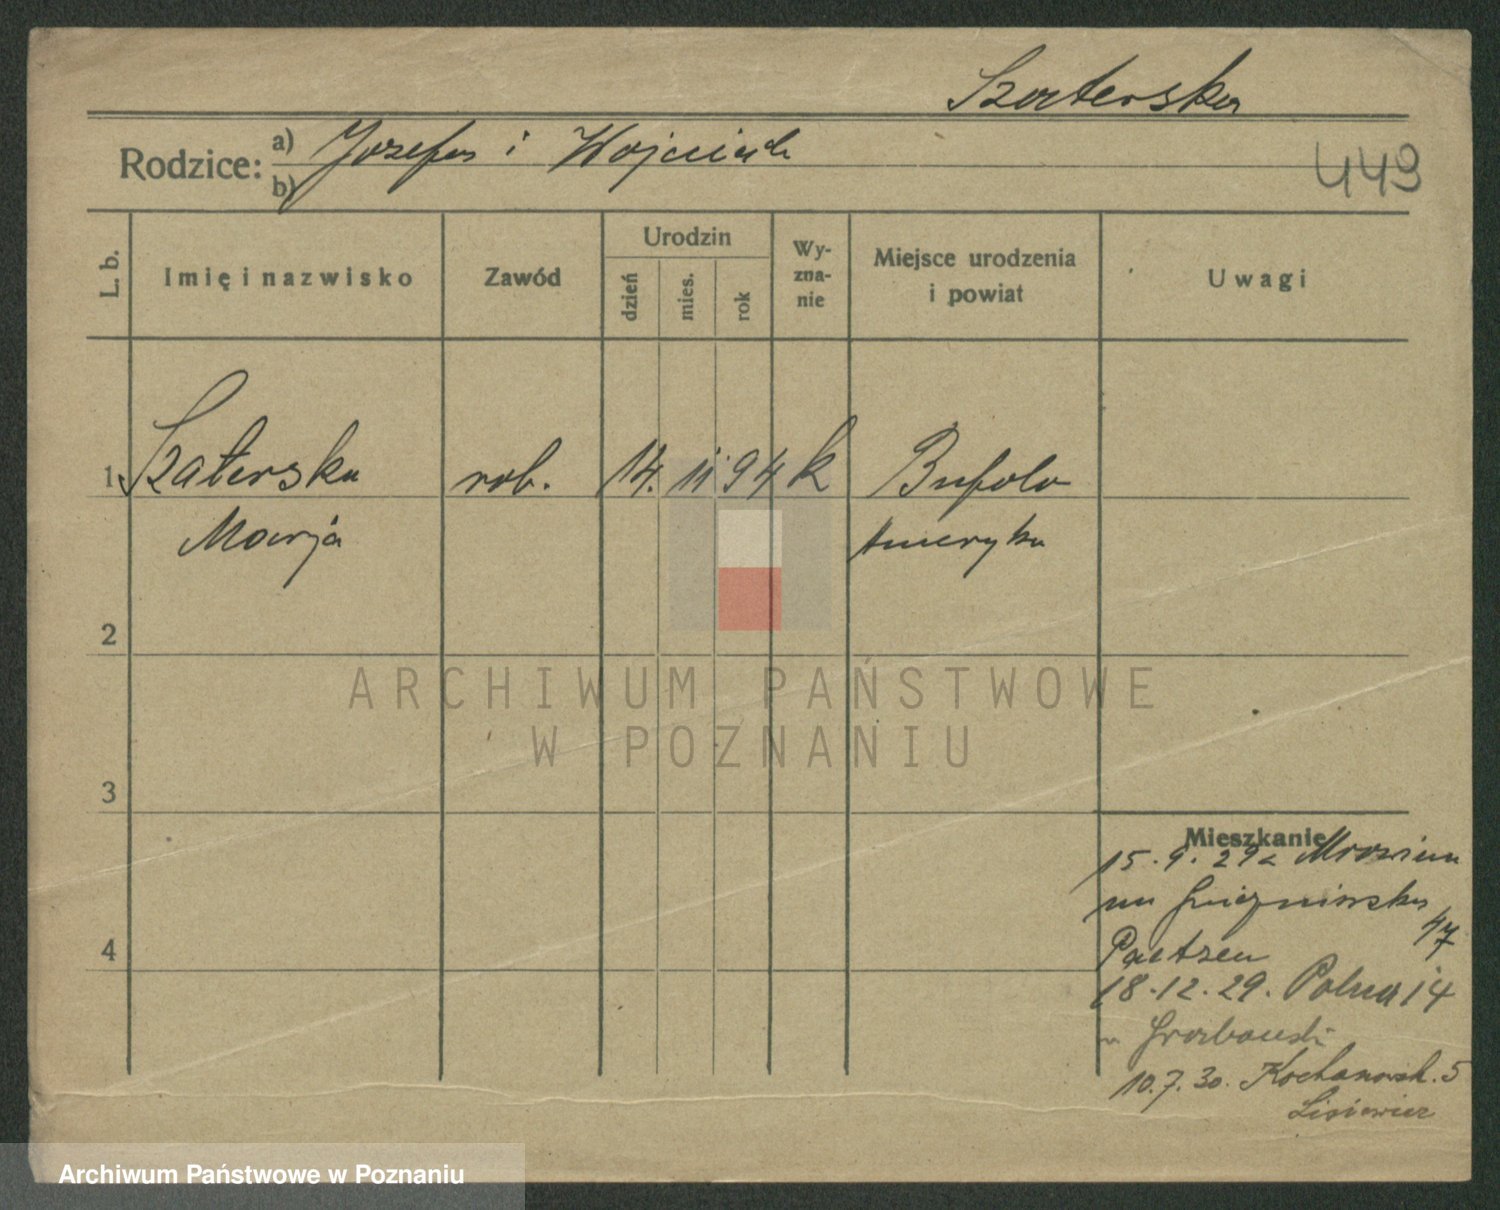 Szaterska
Rodzice: a) Jozefa i Wojciech
b)
449
L. b.
Imię i nazwisko
Zawód
Urodzin
dzień
mies.
rok
Wy-
zna-
nie
Miejsce urodzenia
i powiat
Uwagi
1 Szaterska rob. 14. 11 94 k Bufolo
Marja Ameryka
2
3
4
Mieszkanie
15.9.29 z Mrowina
na Gnieznińska 47
Paetzen
18.12.29. Polna 14
Grabowski
10.7.30. Kochanowsk. 5
Lisiewicz
ARCHIWUM PAŃSTWOWE
W POZNANIU
Archiwum Państwowe w Poznaniu